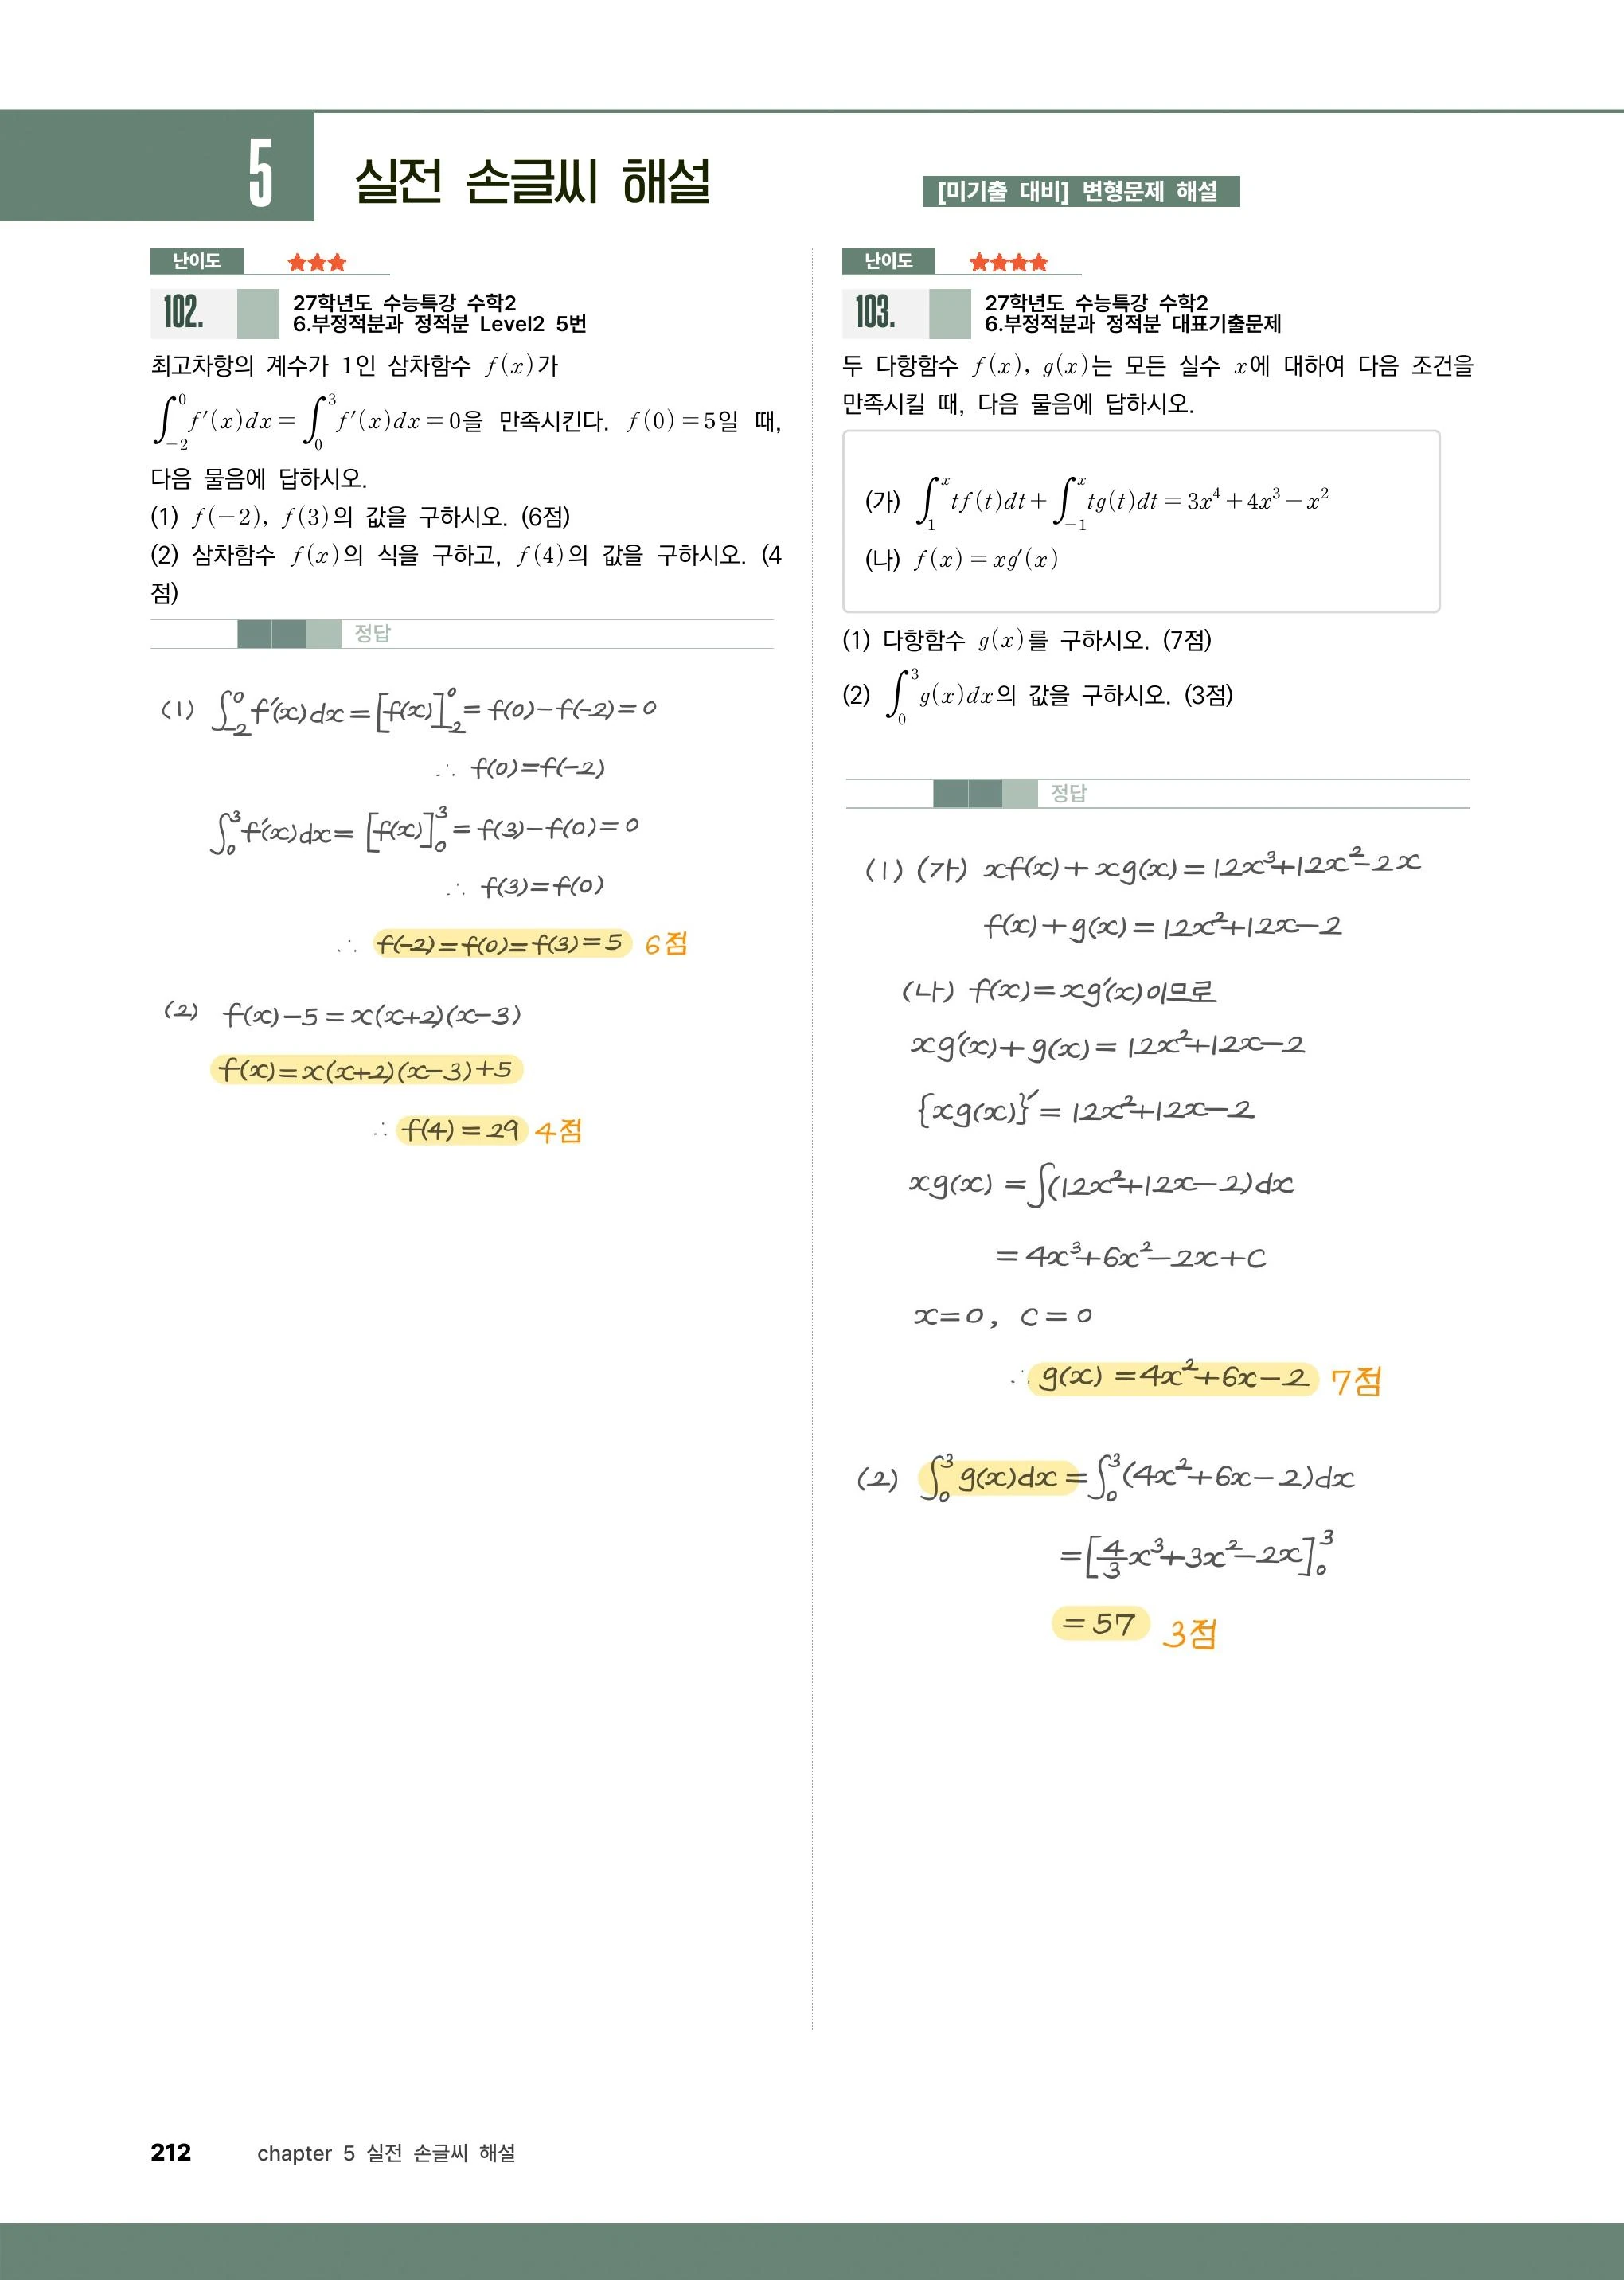 5
실전 손글씨 해설
[미기출 대비] 변형문제 해설
난이도 ★★★
102.
27학년도 수능특강 수학2
6.부정적분과 정적분 Level2 5번
최고차항의 계수가 1인 삼차함수 f(x)가
∫₋₂⁰ f′(x)dx = ∫₀³ f′(x)dx = 0을 만족시킨다. f(0) = 5일 때,
다음 물음에 답하시오.
(1) f(−2), f(3)의 값을 구하시오. (6점)
(2) 삼차함수 f(x)의 식을 구하고, f(4)의 값을 구하시오. (4
점)
정답
(1) ∫₋₂⁰ f′(x)dx = [f(x)]₋₂⁰ = f(0)−f(−2) = 0
∴ f(0)=f(−2)
∫₀³ f′(x)dx = [f(x)]₀³ = f(3)−f(0) = 0
∴ f(3)=f(0)
∴ f(−2)=f(0)=f(3)=5 6점
(2) f(x)−5 = x(x+2)(x−3)
f(x)=x(x+2)(x−3)+5
∴ f(4)=29 4점
난이도 ★★★★
103.
27학년도 수능특강 수학2
6.부정적분과 정적분 대표기출문제
두 다항함수 f(x), g(x)는 모든 실수 x에 대하여 다음 조건을
만족시킬 때, 다음 물음에 답하시오.
(가) ∫₁ˣ tf(t)dt + ∫₋₁ˣ tg(t)dt = 3x⁴ + 4x³ − x²
(나) f(x) = xg′(x)
(1) 다항함수 g(x)를 구하시오. (7점)
(2) ∫₀³ g(x)dx의 값을 구하시오. (3점)
정답
(1) (가) xf(x)+xg(x)=12x³+12x²−2x
f(x)+g(x)=12x²+12x−2
(나) f(x)=xg′(x)이므로
xg′(x)+g(x)=12x²+12x−2
{xg(x)}′=12x²+12x−2
xg(x) = ∫(12x²+12x−2)dx
= 4x³+6x²−2x+C
x=0, C=0
∴ g(x) = 4x²+6x−2 7점
(2) ∫₀³ g(x)dx = ∫₀³ (4x²+6x−2)dx
= [4/3x³+3x²−2x]₀³
= 57 3점
212 chapter 5 실전 손글씨 해설